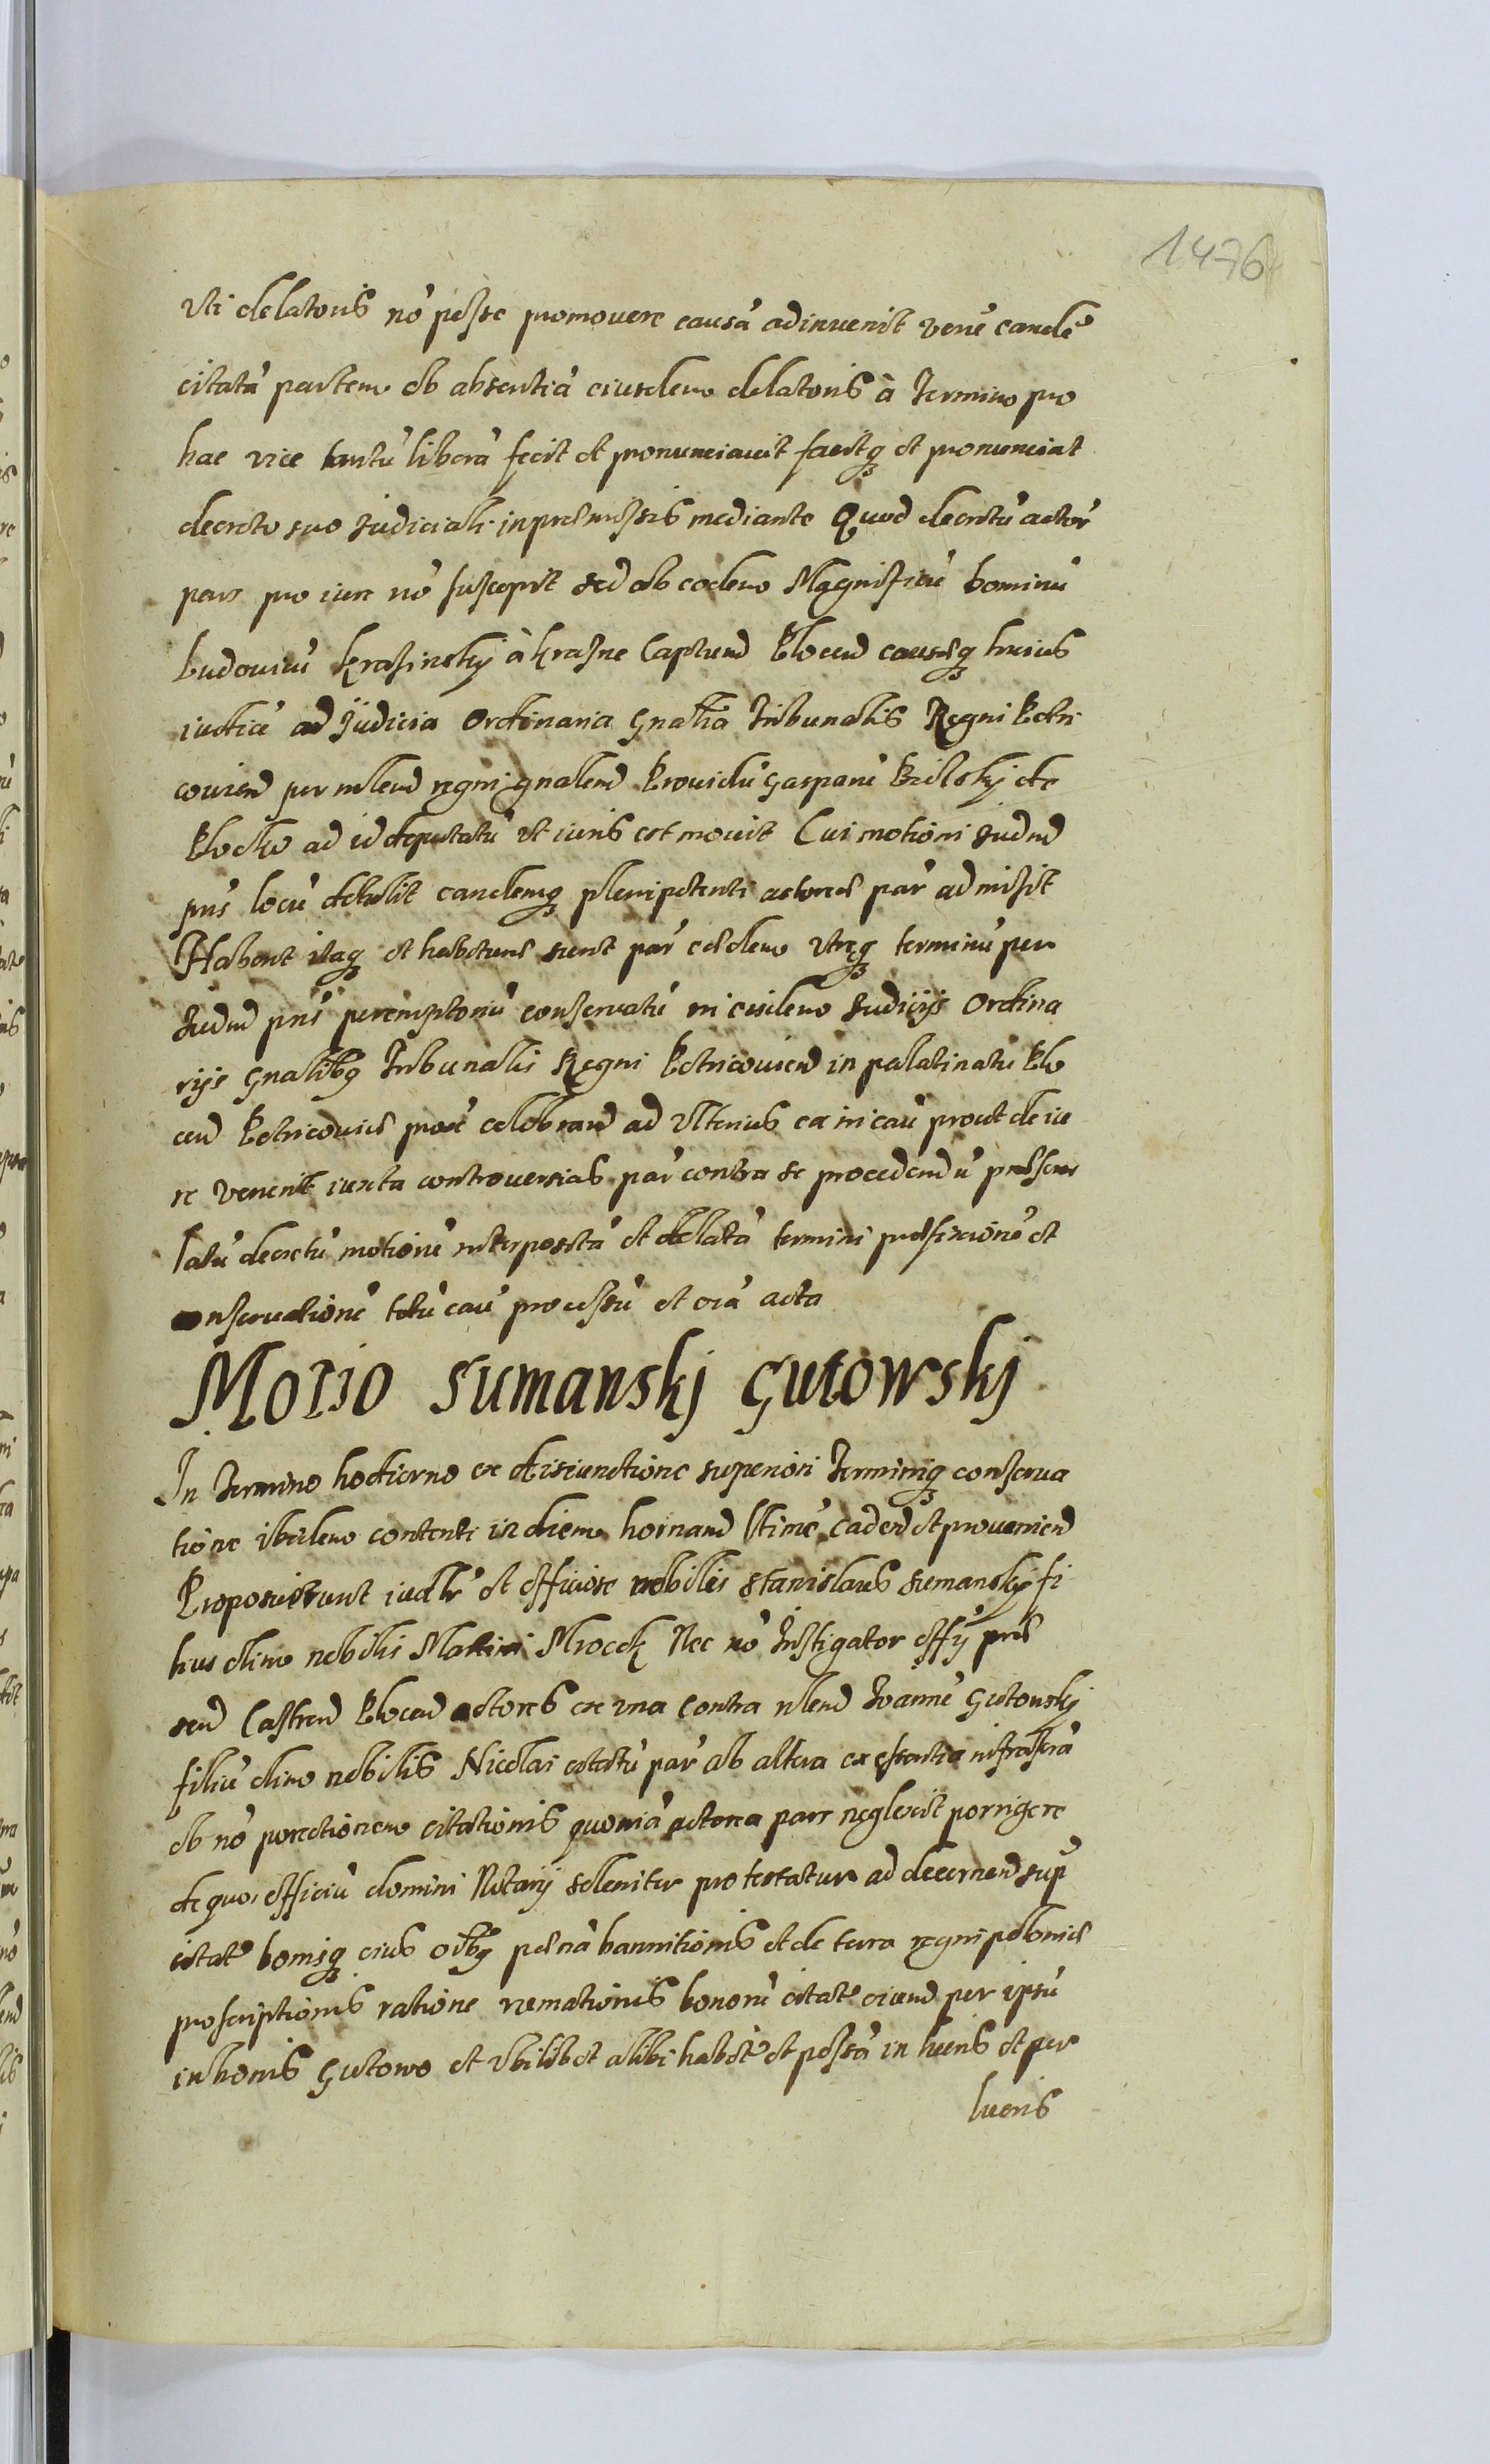 1476
vti delatoris nõ posse promovere causã adinvenit verũ eandẽ
citatã partem ob absentiã eiusdem delatoris à Termino pro
hac vice tantũ liberã fecit et pronunciavit facitq̃ et pronunciat
decreto suo Judiciali in præmissis mediante Quod decretũ actor̃
pars pro iure nõ suscepit sed ab eodem Magnificũ Dominũ
Ludovicũ Krasinskj à Krasne Capitand Plocend causæq̃ huius
iudiciũ ad Judicia Ordinaria Gnalia Tribunalis Regni Petri
coviend per mlend regni gnalend Providũ Gasparũ Bielskj de
Plocko ad id deputatũ vt iuris est movit Cui motioni Judnd
pñs locũ detulit eandemq̃ plenipotenti actoreæ par̃ admisit
Habent itaq̃ et habituræ sunt par̃ eædem vtræq̃ terminũ per
Judnd pñs peremptoriũ conservatũ in eisdem Judicijs Ordina
rijs Gnalibq̃ Tribunalis Regni Petricoviend in palatinatu Plo
cend Petricoviæ proxẽ celebrand ad vlterius ea in cau prout de iu
re venerit iuxta controversias par̃ contra se procedendũ præsens
latũ decretũ motionẽ interpositã et delatã termini præfixionẽ et
conservationẽ totũ cau processũ et oĩa acta
Motio Sumanskj Gutowskj
In Termino hodierno ex disiunctione superiori Terminiq̃ conserva
tione ibidem contenti in diem hornand ltimẽ cadend et proveniend
Proposuerunt iudlr̃ et officiose nobilis Stanislaus Sumanskj fi
lius olim nobilis Martini Mrocek Nec nõ Instigator offj præ
send Castrend Plocend actores ex vna contra nlend Joannẽ Gutowskj
filiũ olim nobilis Nicolai citatũ par̃ ab altera ex instantia infrascrã
ob nõ porectionem citationis quoniã actorea pars neglexit porrigere
de quo officiũ domini Notarij soleniter protestatur ad decernend sup
citatõ bonisq̃ eius oĩbq̃ pænã bannitionis et de terra regni poloniæ
proscriptionis ratione remationis bonorũ citatẽ ciend per ipsũ
in bonis Gutowo et vbilibet alibi habitẽ et possã in hæris et per
lucris